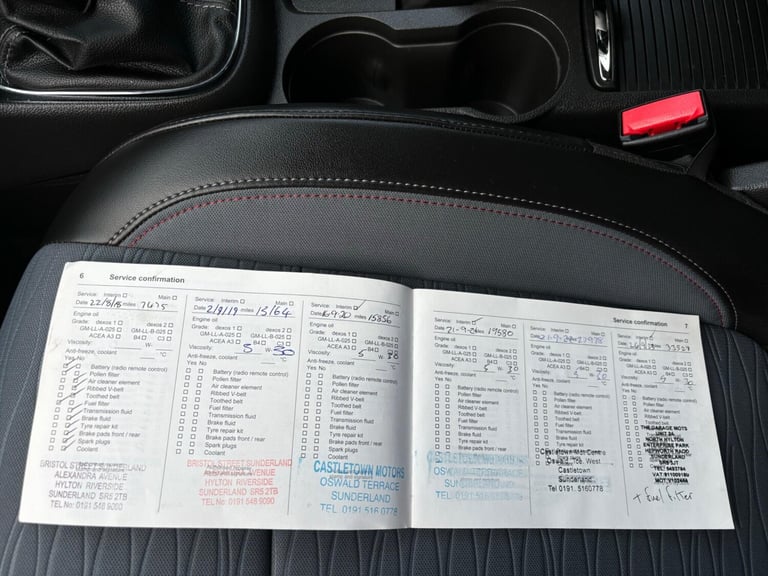 6 Service confirmation
Service: Interim ☐ Main ☐
Date 22/8/18 miles 7475
Engine oil
Grade: dexos 1 ☐ dexos 2 ☐
GM-LL-A-025 ☐ GM-LL-B-025 ☐
ACEA A3 ☐ B4 ☐ C3 ☐
Viscosity: W-
Anti-freeze, coolant °C
Yes No
Battery (radio remote control)
Pollen filter
Air cleaner element
Ribbed V-belt
Toothed belt
Fuel filter
Transmission fluid
Tyre repair kit
Brake pads front / rear
Spark plugs
Coolant
BRISTOL STREET SUNDERLAND
ALEXANDRA AVENUE
HYLTON RIVERSIDE
SUNDERLAND SR5 2TB
TEL No: 0191 548 9090
Service: Interim ☐ Main ☐
Date 2/9/19 miles 15164
Engine oil
Grade: dexos 1 ☐ dexos 2 ☐
GM-LL-A-025 ☐ GM-LL-B-025 ☐
ACEA A3 ☐ B4 ☐ C3 ☐
Viscosity: 5 W- 30
Anti-freeze, coolant °C
Yes No
Battery (radio remote control)
Pollen filter
Air cleaner element
Ribbed V-belt
Toothed belt
Fuel filter
Transmission fluid
Tyre repair kit
Brake pads front / rear
Spark plugs
Coolant
BRISTOL STREET SUNDERLAND
ALEXANDRA AVENUE
HYLTON RIVERSIDE
SUNDERLAND SR5 2TB
TEL No: 0191 548 9090
Service: Interim ☐ Main ☐
Date 16-9-20 miles 15856
Engine oil
Grade: dexos 1 ☐ dexos 2 ☐
GM-LL-A-025 ☐ GM-LL-B-025 ☐
ACEA A3 ☐ B4 ☐ C3 ☐
Viscosity: 5 W-
Anti-freeze, coolant °C
Yes No
Battery (radio remote control)
Pollen filter
Air cleaner element
Ribbed V-belt
Toothed belt
Fuel filter
Transmission fluid
Tyre repair kit
Brake pads front / rear
Spark plugs
Coolant
CASTLETOWN MOTORS
OSWALD TERRACE
SUNDERLAND
TEL 0191 516 0778
Service confirmation 7
Service: Interim ☐ Main ☐
Date 21-9-21 miles 19580
Engine oil
Grade: dexos 1 ☐ dexos 2 ☐
GM-LL-A-025 ☐ GM-LL-B-025 ☐
ACEA A3 ☐ B4 ☐ C3 ☐
Viscosity: 5 W- 30
Anti-freeze, coolant °C
Yes No
Battery (radio remote control)
Pollen filter
Air cleaner element
Ribbed V-belt
Toothed belt
Fuel filter
Transmission fluid
Tyre repair kit
Brake pads front / rear
Spark plugs
Service: Interim ☐ Main ☐
Engine oil
Grade: dexos 1 ☐ dexos 2 ☐
GM-LL-A-025 ☐ GM-LL-B-025 ☐
Viscosity:
Anti-freeze, coolant °C
Yes No
Battery (radio remote control)
Pollen filter
Air cleaner element
Ribbed V-belt
Toothed belt
Fuel filter
Transmission fluid
Tyre repair kit
Brake pads front / rear
Castletown
Sunderland
Tel 0191. 5160778
Main ☐
Engine oil
Grade: dexos 1 ☐ dexos 2 ☐
GM-LL-A-025 ☐ GM-LL-B-025 ☐
Viscosity: 5 W- 30
Anti-freeze, coolant °C
Yes No
Battery (radio remote control)
Pollen filter
Air cleaner element
Ribbed V-belt
THE GARAGE MOTS
NORTH HYLTON
ENTERPRISE PARK
SUNDERLAND
+ fuel filter